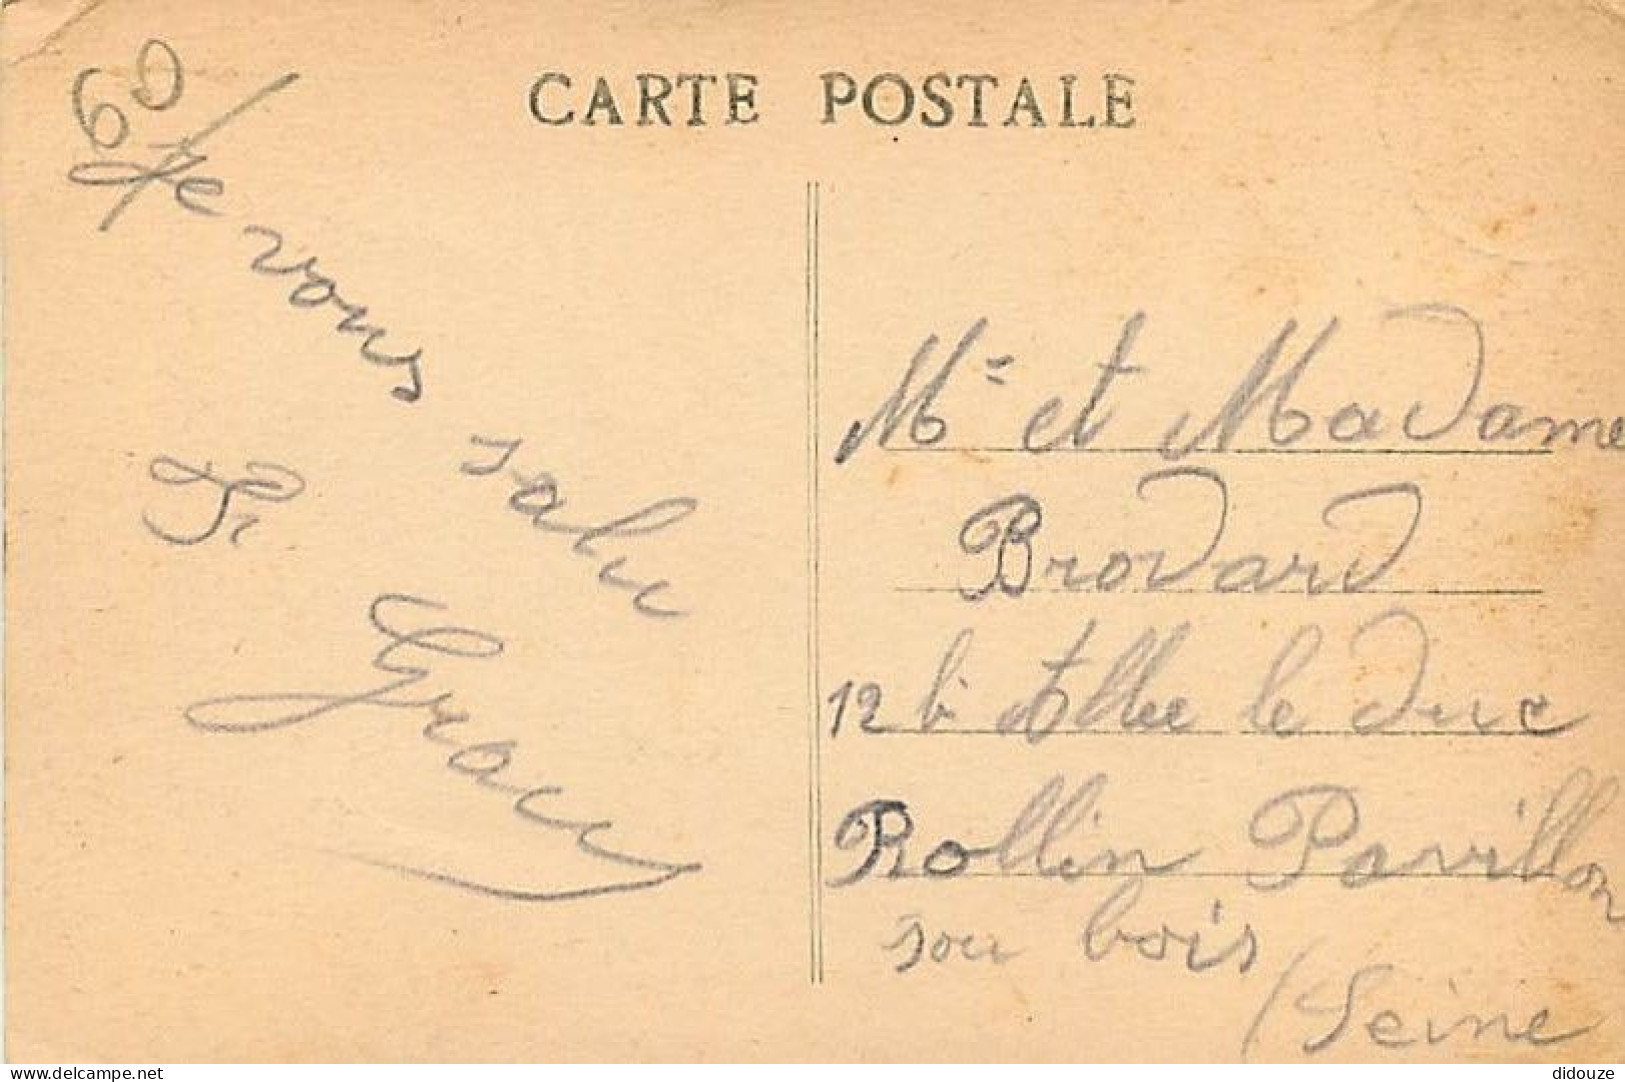 CARTE POSTALE
60/
Je vous salu
Gracu
Mr et Madame
Brodard
12 b Allee le duc
Rollin Pavillon
sou bois
(Seine
delcampe.net
didouze